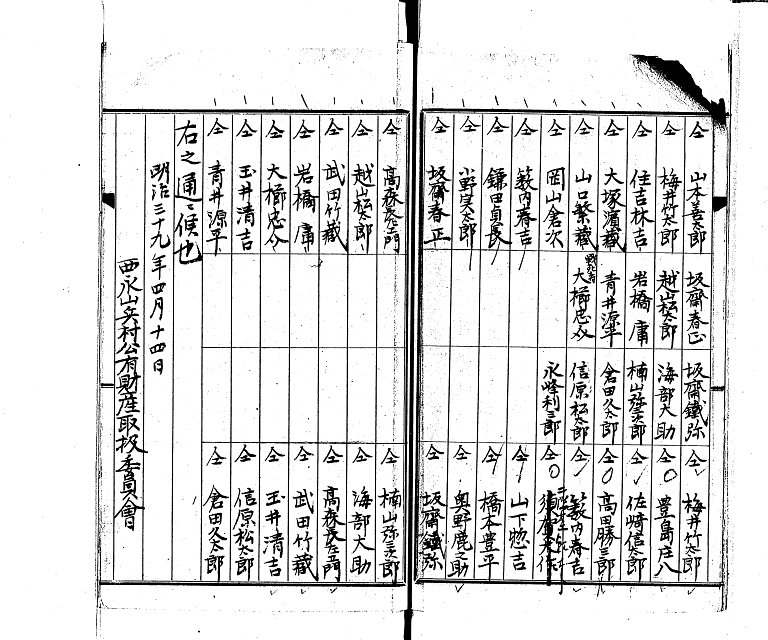 仝 山本善太郎
仝 梅井竹太郎
仝 住吉林吉
仝 大塚濱藏
仝 山口繁藏
仝 岡山倉次
仝 籔内春吉
仝 鎌田貞長
仝 小野宇太郎
仝 坂齋春正
坂齋春正
越山松太郎
岩橋庸
青井源平
大櫛忠㕝
坂齋鐵弥
海部大助
楠山弥三郎
倉田久太郎
信原松太郎
永峰利三郎
仝 梅井竹太郎
仝 豊島庄八
仝 佐﨑信太郎
仝 高田勝三郎
仝 籔内春吉
仝
仝 山下惣吉
仝 橋本豊平
仝 奥野鹿之助
仝 坂齋鐵弥
仝 高森長左衛門
仝 越山松太郎
仝 武田竹藏
仝 岩橋庸
仝 大櫛忠㕝
仝 玉井清吉
仝 青井源平
仝 楠山弥三郎
仝 海部大助
仝 高森長左衛門
仝 武田竹藏
仝 玉井清吉
仝 信原松太郎
仝 倉田久太郎
右之通ニ候也
明治三十九年四月十四日
西永山兵村公有財産取扱委員會